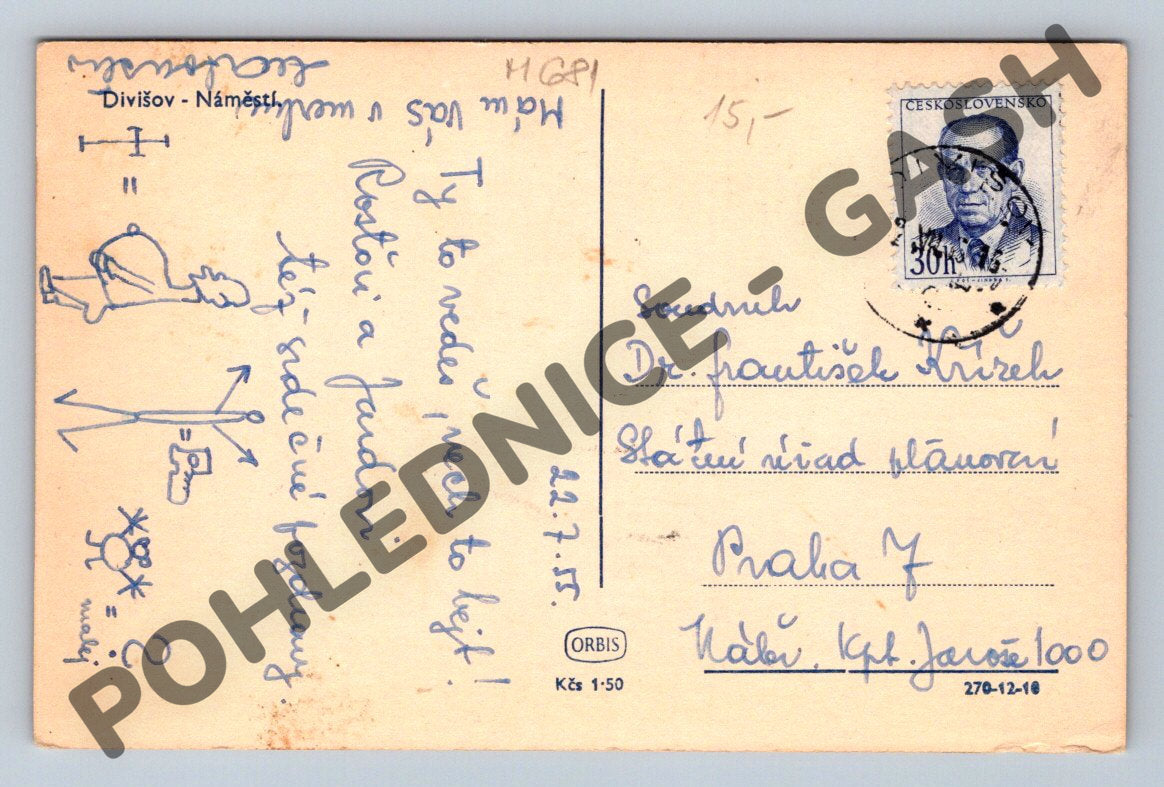 Divišov - Náměstí.
M 681
15,-
ČESKOSLOVENSKO
30h
22.7.55.
Mám Vás v merku
Ty to vedeš, nech to bejt!
Rostóvi a Jandovi.
též srdečné pozdravy.
=
=
=
malej
Soudruh
Dr. František Křížek
Státní úřad plánovací
Praha 7
Nábř. Kpt. Jaroše 1000
ORBIS
Kčs 1·50
270-12-18
POHLEDNICE - GASH